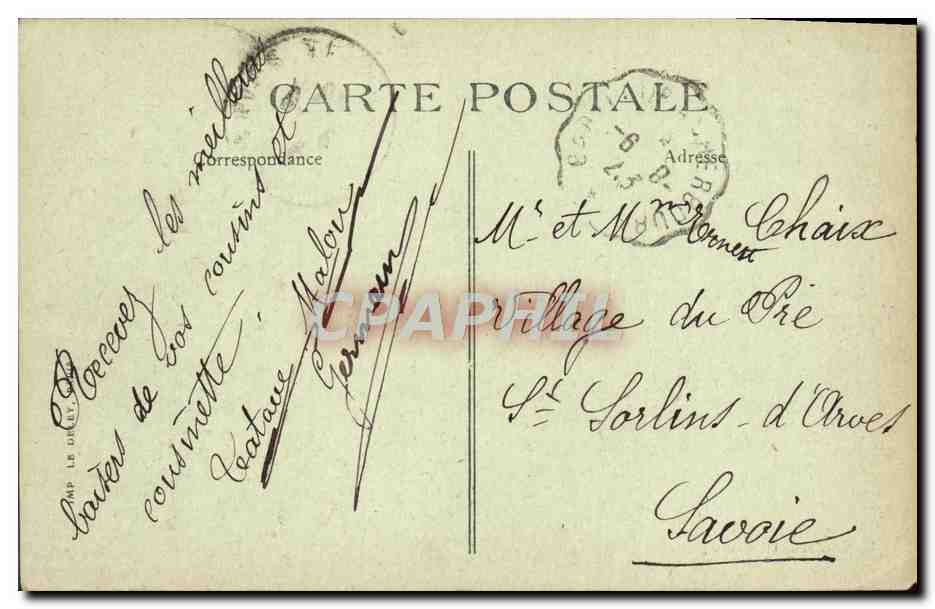 CARTE POSTALE
Correspondance
Adresse
Recevez les meilleurs
baisers de vos cousins et
cousinette.
Tatave Malou
Germain
Mr et Mme Ernest Chaix
Village du Pré
St Sorlins-d'Arves
Savoie
CPAPHIL
IMP LE DELEY,
CHERBOURG
6-8
23